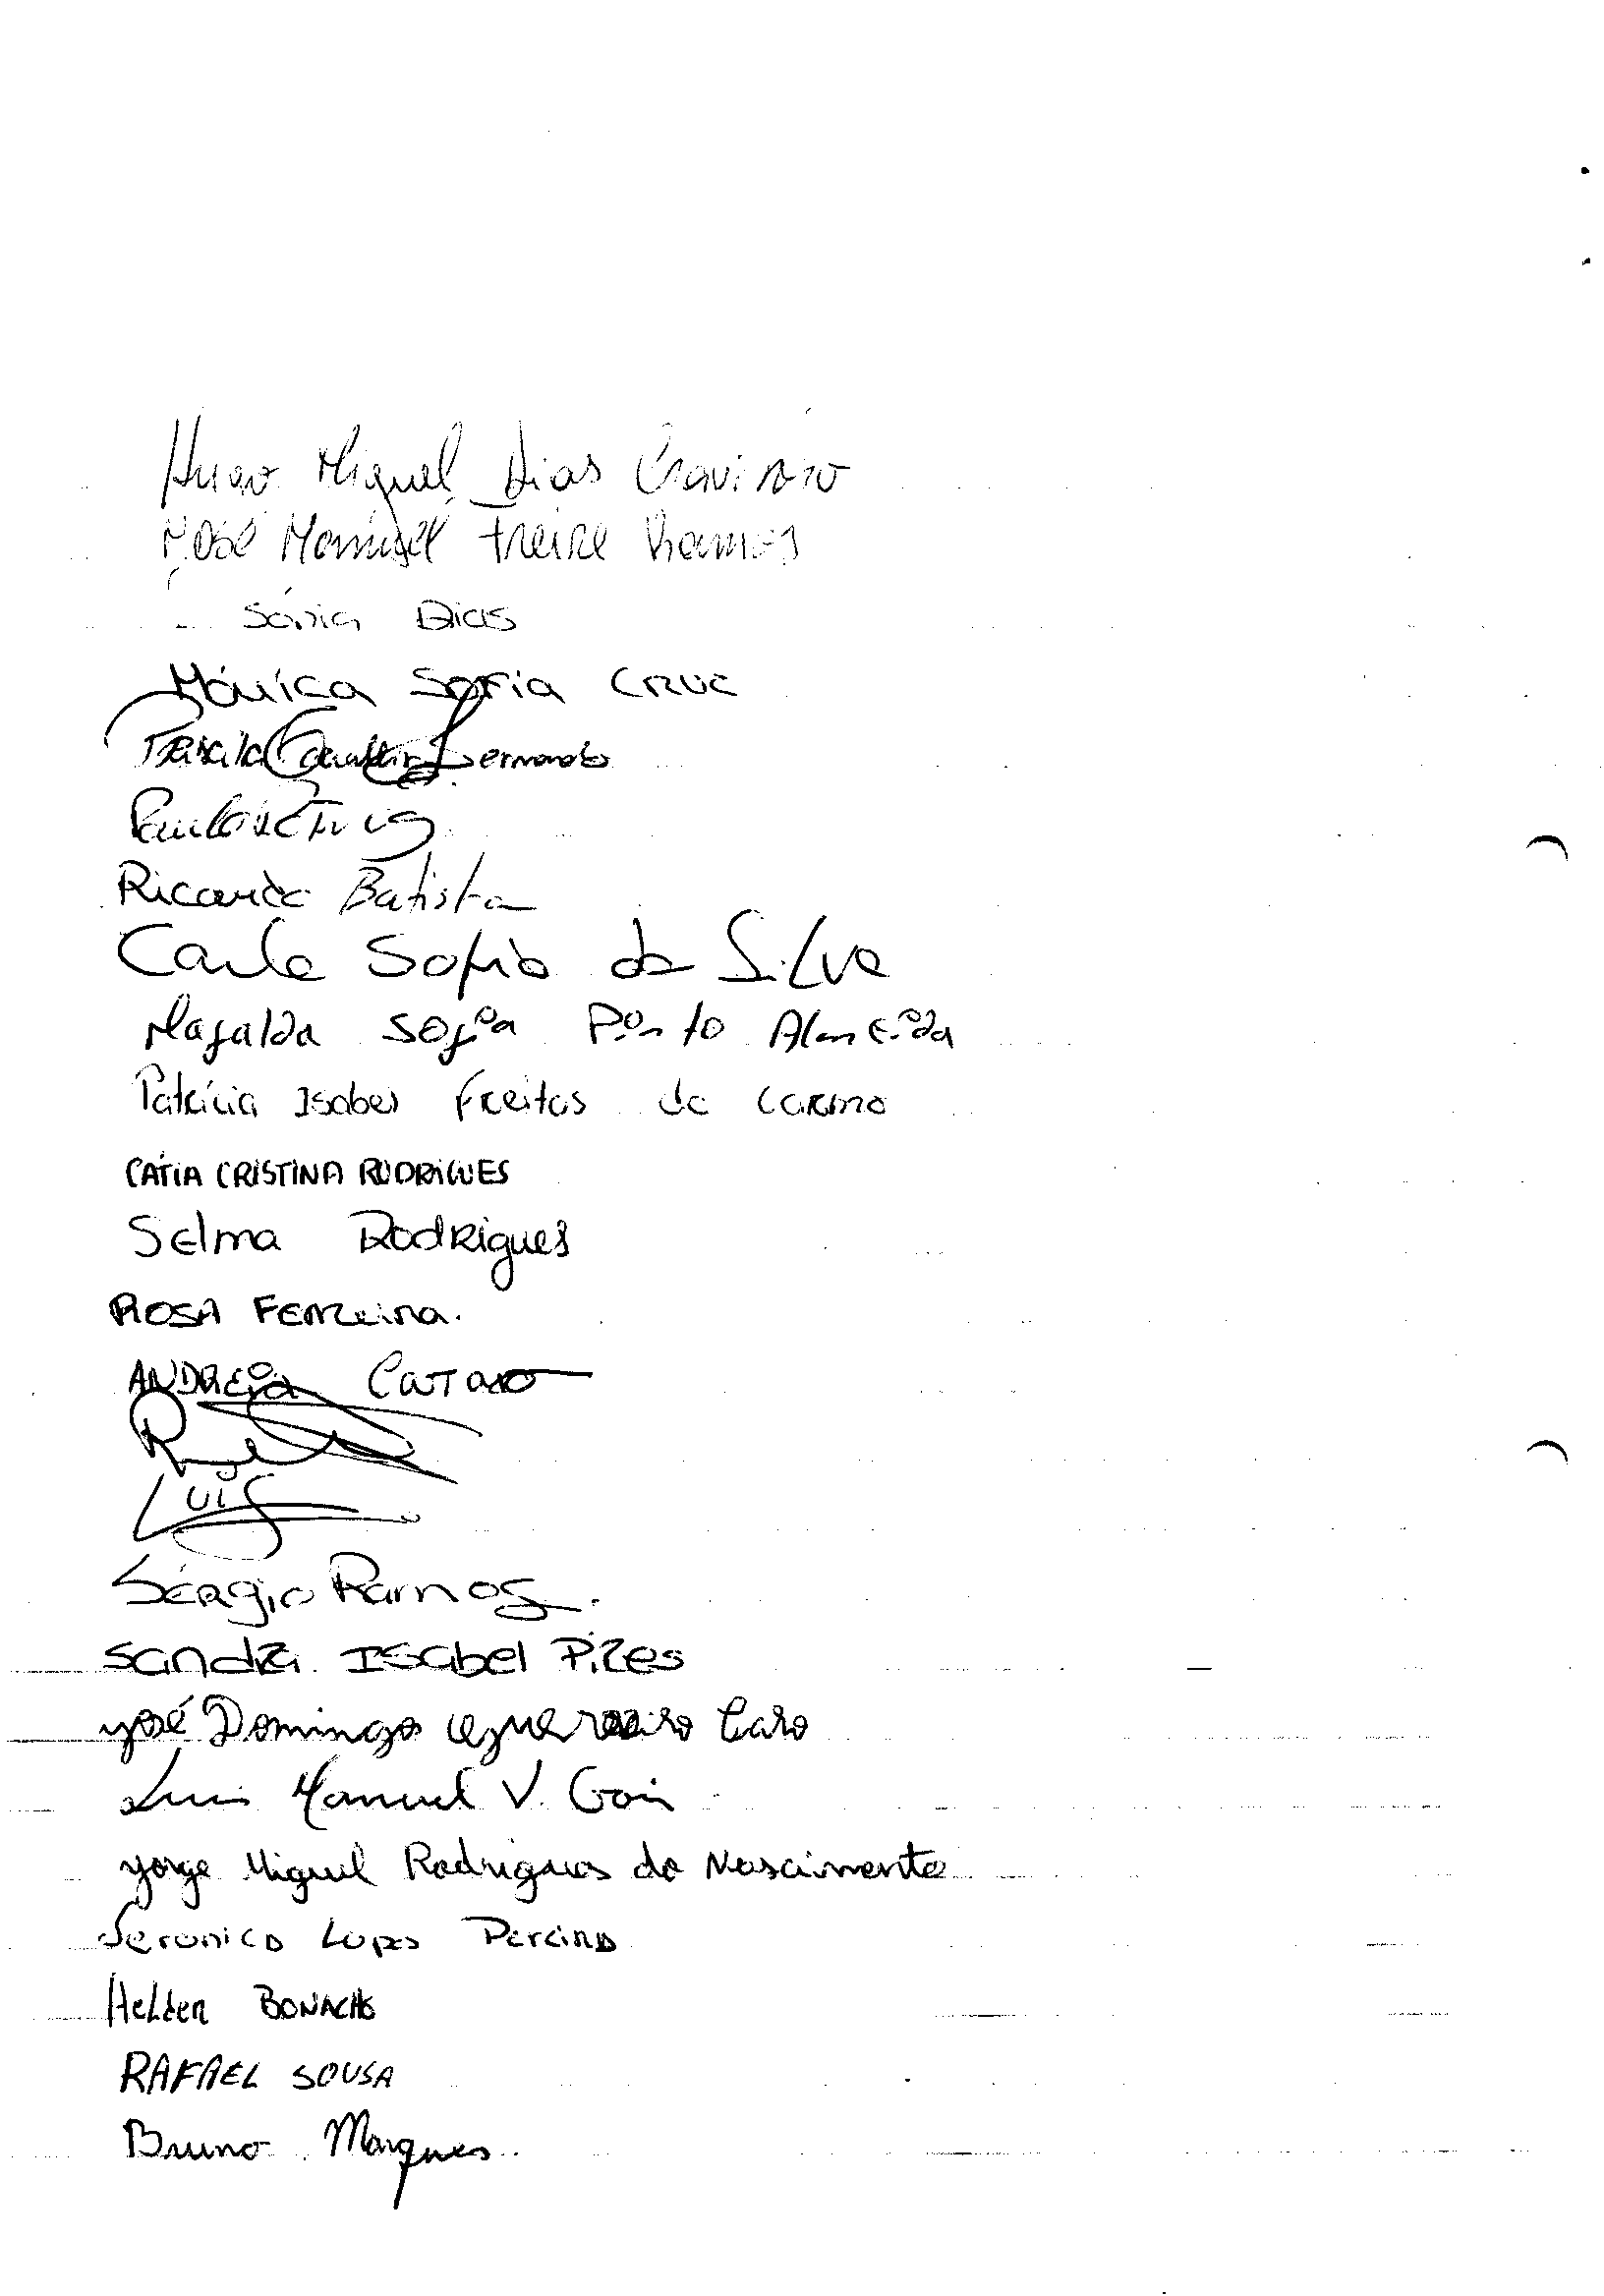 Hugo Miguel Dias Craveiro
José Manuel Freire Ramos
Sónia Dias
Mónica Sofia Cruz
Ricardo Batista
Carla Sofia da Silva
Mafalda Sofia Pinto Almeida
Patrícia Isabel Freitas do Carmo
CÁTIA CRISTINA RODRIGUES
Selma Rodrigues
ROSA FERREira.
ANDREia
Luis
Sérgio Ramos.
Sandra Isabel Pires
José Domingos Guerreiro Caro
Luis Manuel V. Gois
Jorge Miguel Rodrigues do Nascimento
Veronica Lopes
Helder BONACHO
RAFAEL SOUSA
Bruno Marques